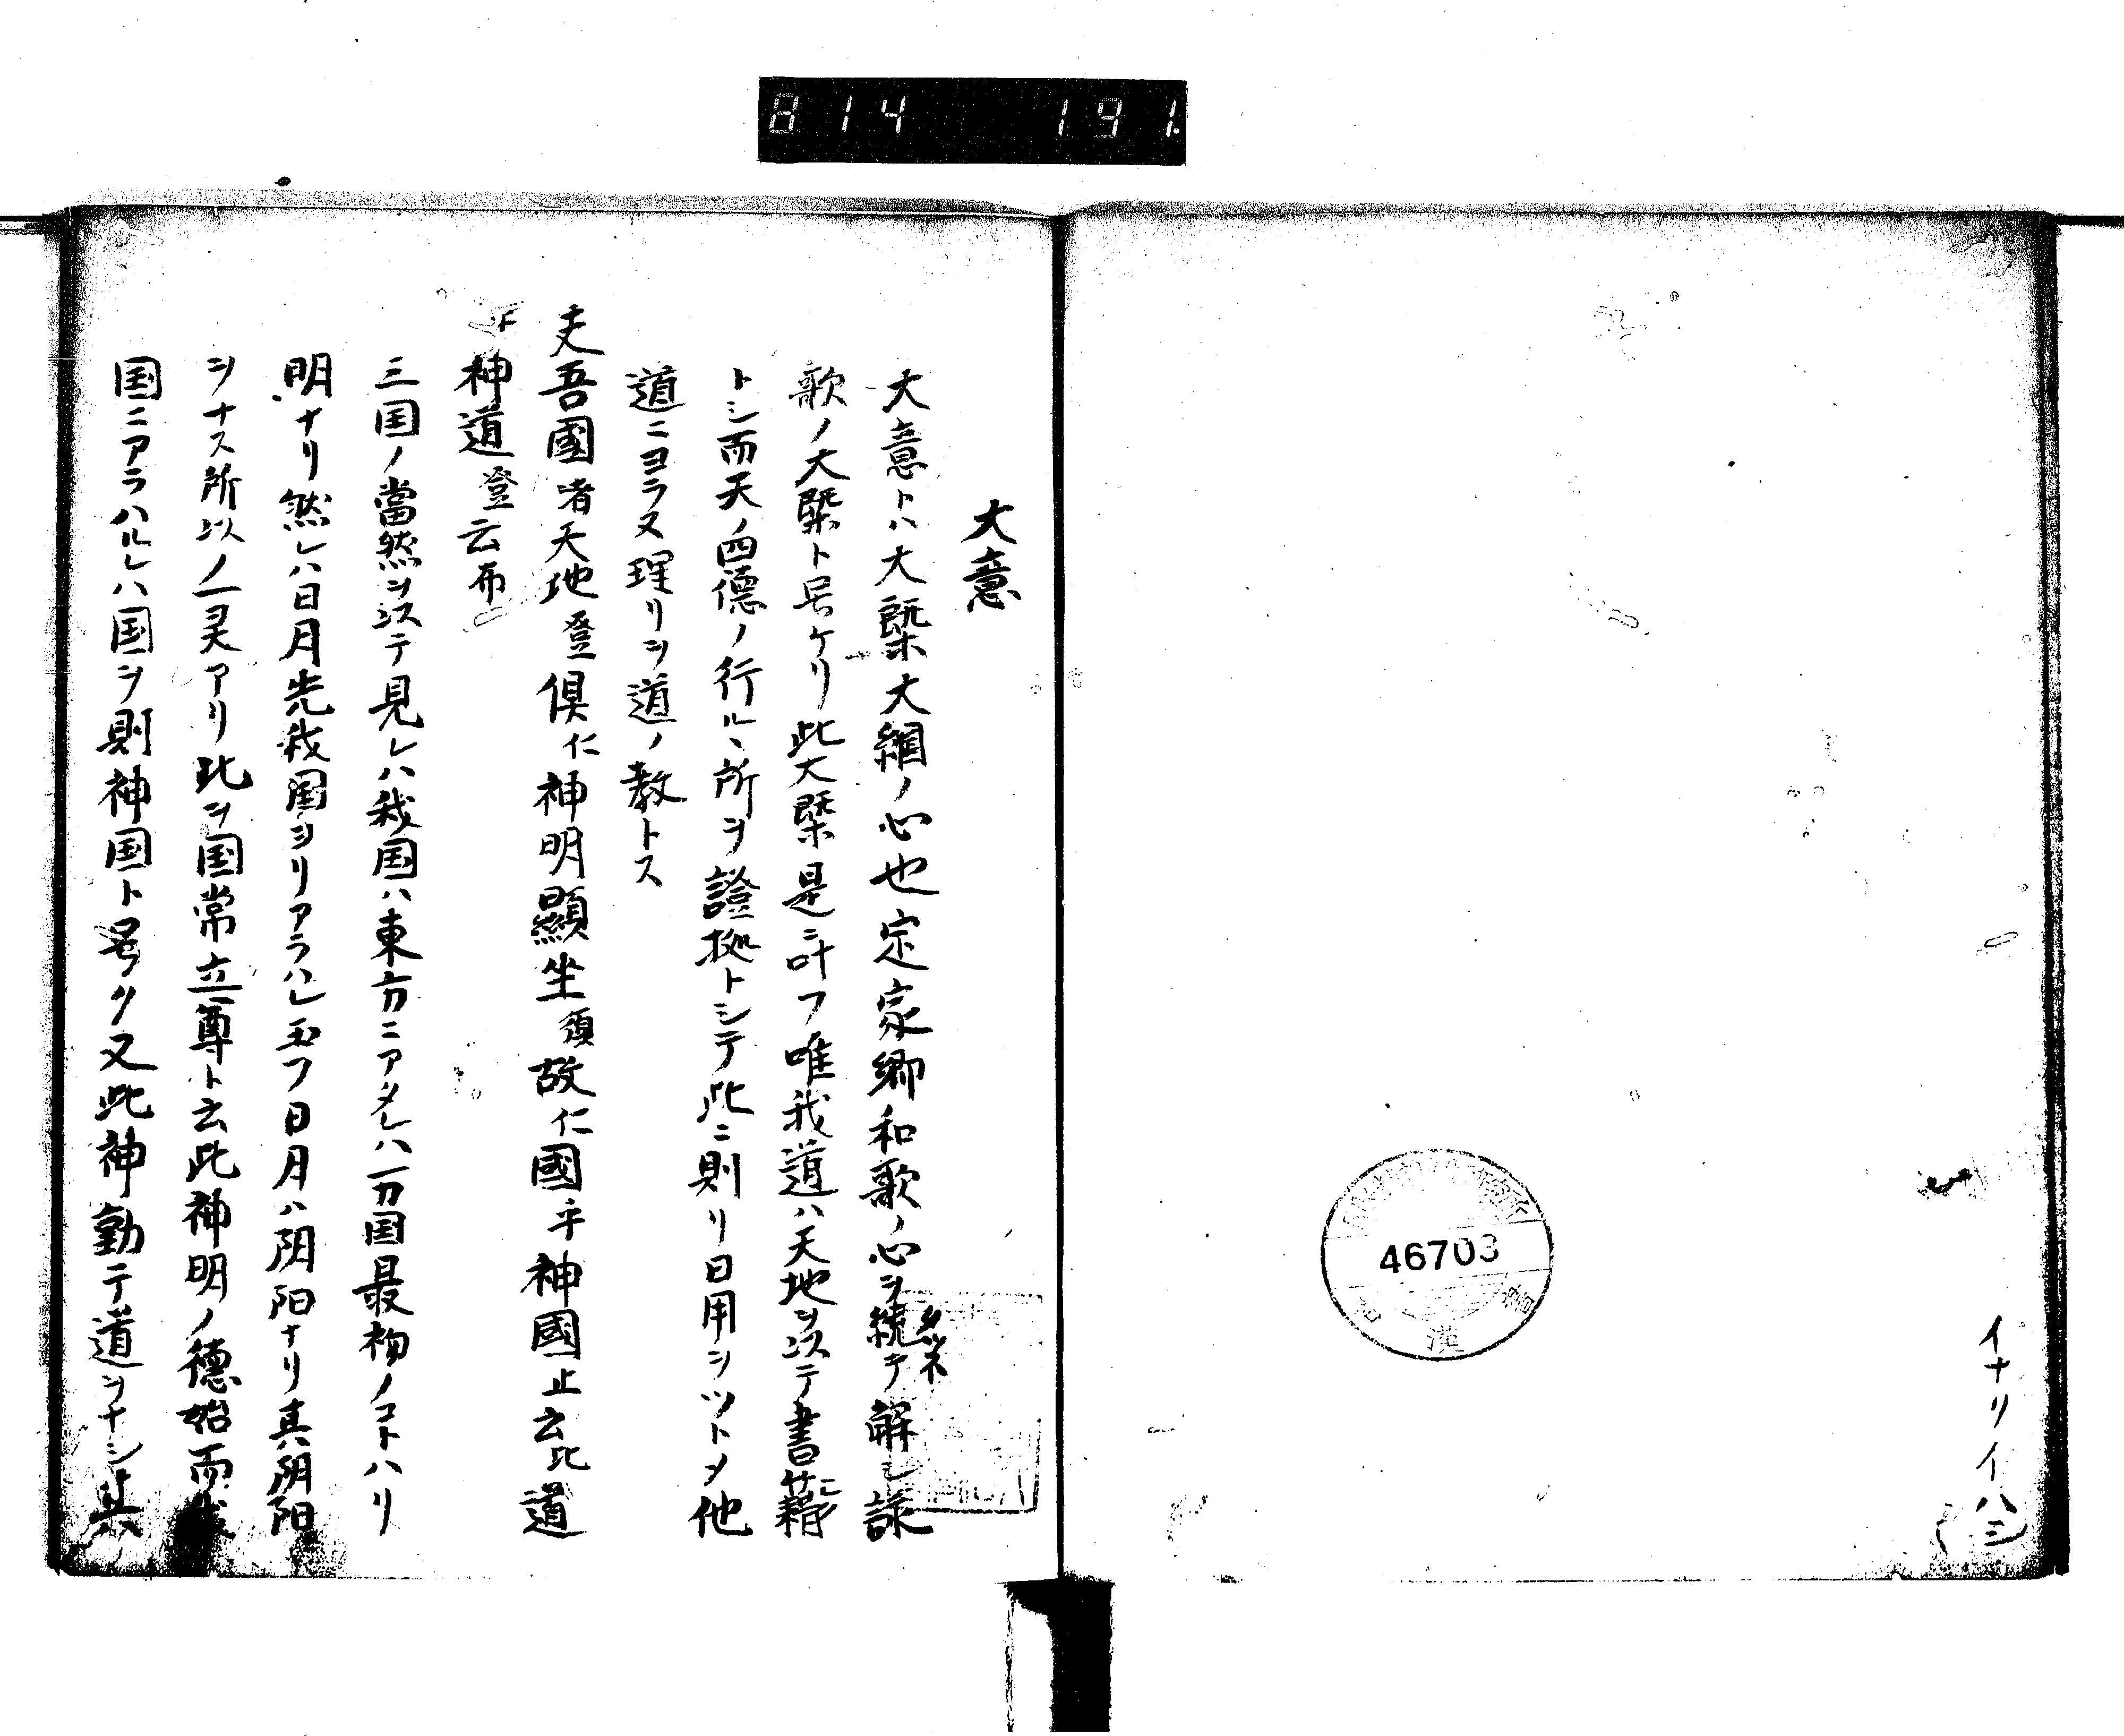 814 191.
イナリイハシ
46703
大意
大意トハ大槩大綱ノ心也定家卿和歌ノ心ヲ続テ解シ詠
タツネ
歌ノ大槩ト号ケリ此大槩是ニ叶フ唯我道ハ天地ヲ以テ書籍
トシ而天ノ四德ノ行ルヽ所ヲ證拠トシテ此ニ則リ日用ヲツトメ他
道ニヨラヌ理リヲ道ノ教トス
夫吾國者天地登俱仁神明顯坐須故仁國乎神國止云比道
乎神道登云布
三国ノ當然ヲ以テ見レハ我国ハ東方ニアタレハ万国最初ノコトハリ
明ナリ然レハ日月先我国ヨリアラハレ玉フ日月ハ阴阳ナリ真阴阳
ヲナス所以ノ一灵アリ此ヲ国常立尊ト云此神明ノ德始而我
国ニアラハルレハ国ヲ則神国ト号ク又此神動テ道ヲナシ其